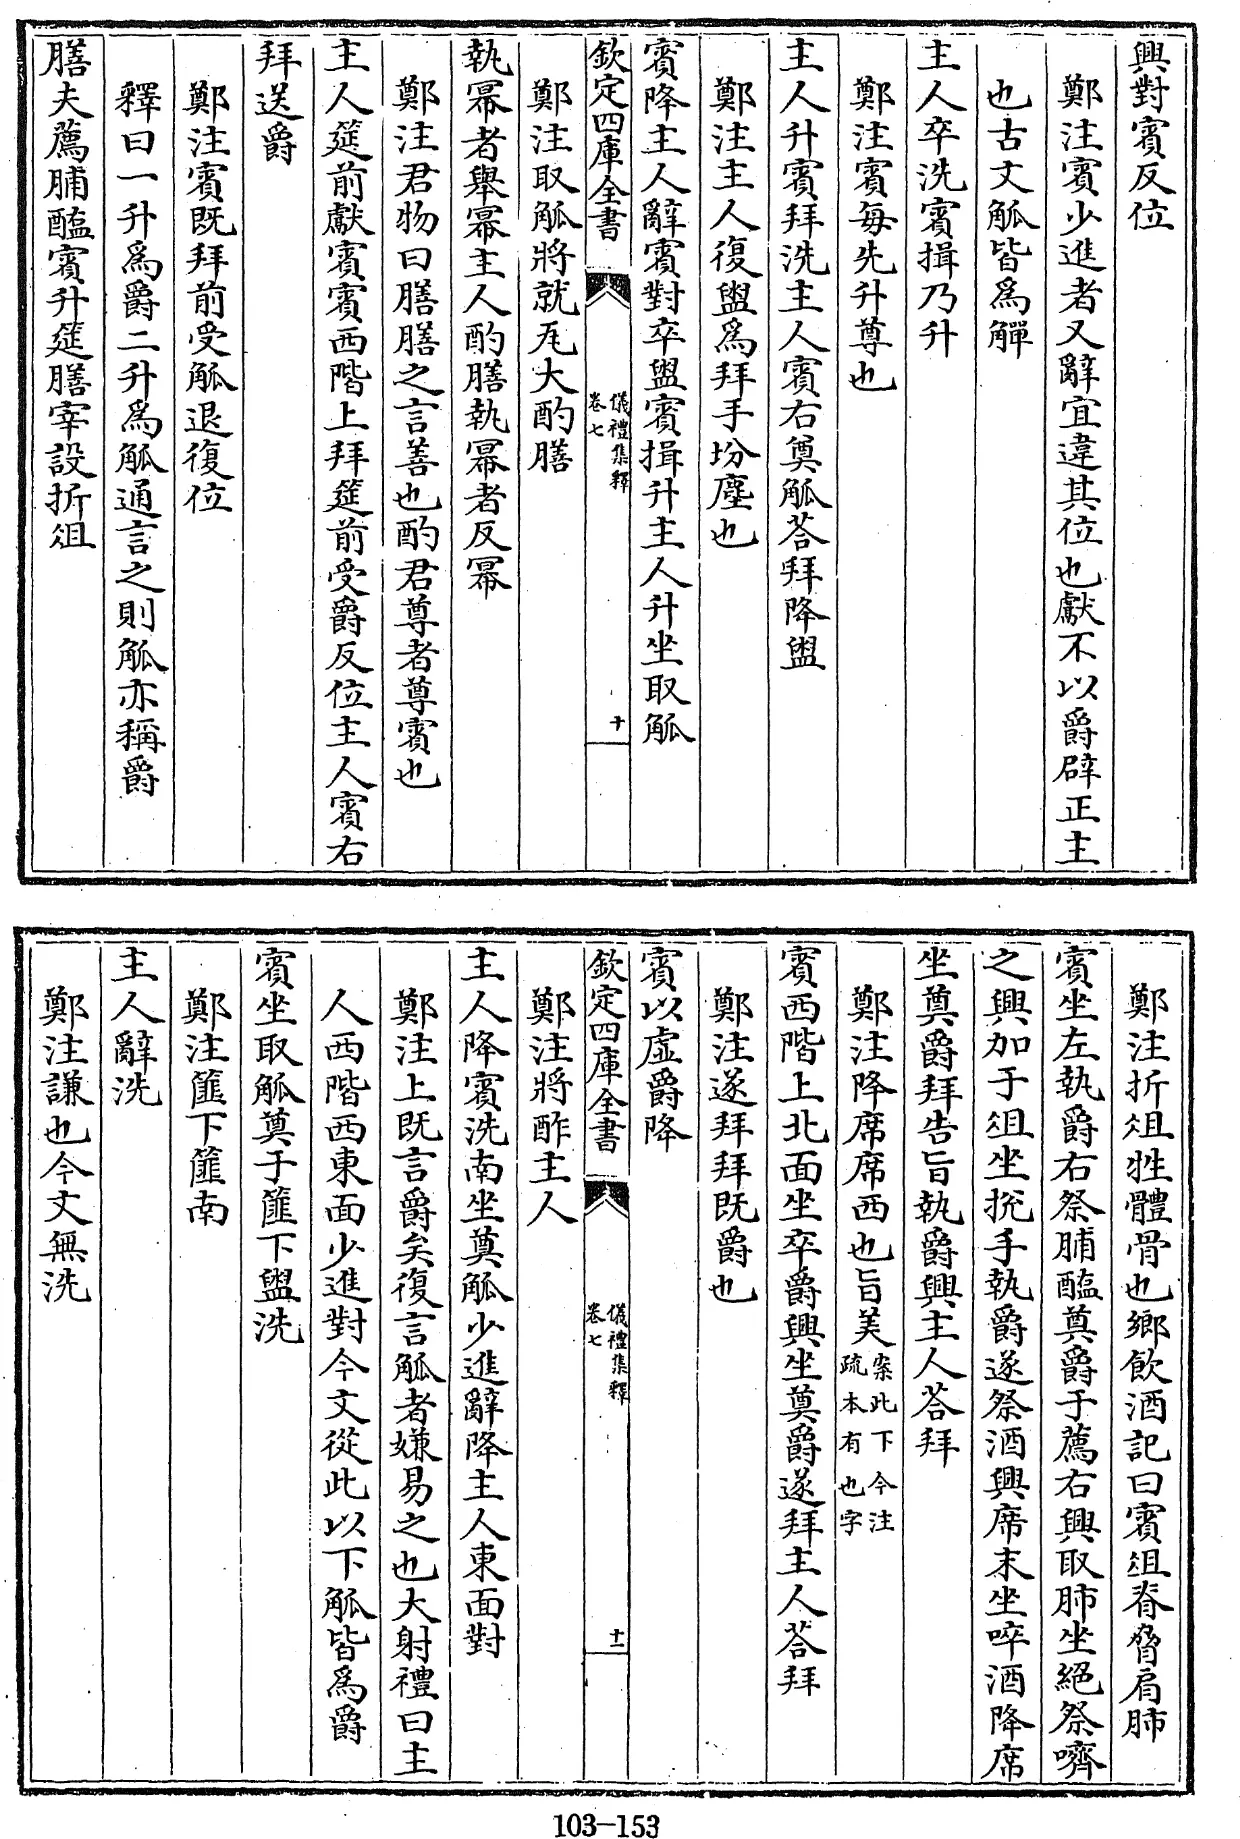 興對賓反位
鄭注賓少進者又辭宜違其位也獻不以爵辟正主
也古文觚皆爲觶
主人卒洗賓揖乃升
鄭注賓每先升尊也
主人升賓拜洗主人賓右奠觚荅拜降盥
鄭注主人復盥爲拜手坋塵也
賓降主人辭賓對卒盥賓揖升主人升坐取觚
欽定四庫全書
儀禮集釋
卷七
十
鄭注取觚將就瓦大酌膳
執冪者舉冪主人酌膳執冪者反冪
鄭注君物曰膳膳之言善也酌君尊者尊賓也
主人筵前獻賓賓西階上拜筵前受爵反位主人賓右
拜送爵
鄭注賓既拜前受觚退復位
釋曰一升爲爵二升爲觚通言之則觚亦稱爵
膳夫薦脯醢賓升筵膳宰設折俎
鄭注折俎牲體骨也鄉飲酒記曰賓俎脊脅肩肺
賓坐左執爵右祭脯醢奠爵于薦右興取肺坐絕祭嚌
之興加于俎坐挩手執爵遂祭酒興席末坐啐酒降席
坐奠爵拜告旨執爵興主人荅拜
鄭注降席席西也旨美案此下今注疏本有也字
賓西階上北面坐卒爵興坐奠爵遂拜主人荅拜
鄭注遂拜拜既爵也
賓以虛爵降
欽定四庫全書
儀禮集釋
卷七
十一
鄭注將酢主人
主人降賓洗南坐奠觚少進辭降主人東面對
鄭注上既言爵矣復言觚者嫌易之也大射禮曰主
人西階西東面少進對今文從此以下觚皆爲爵
賓坐取觚奠于篚下盥洗
鄭注篚下篚南
主人辭洗
鄭注謙也今文無洗
103-153